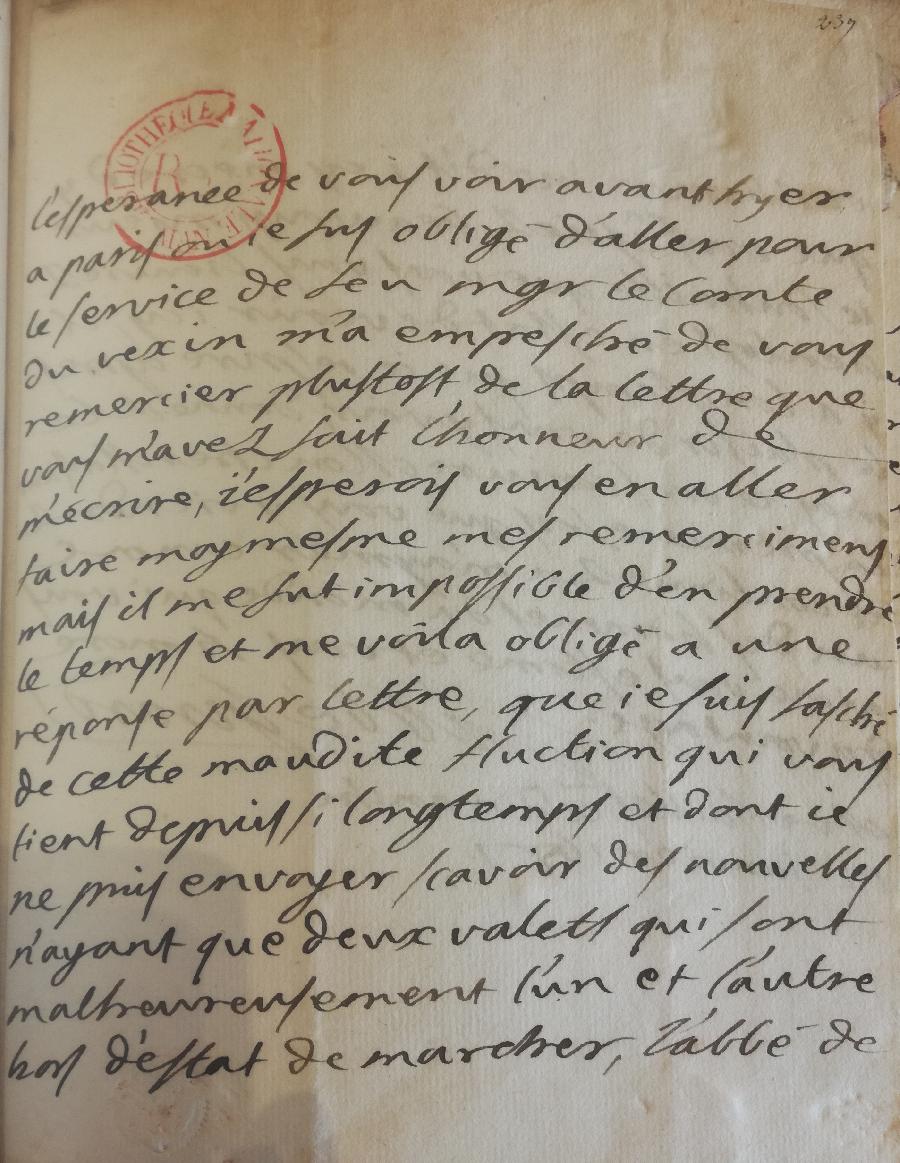 239
BIBLIOTHEQUE NATIONALE
R
l'esperance de vous voir avant hyer
a paris ou ie fus obligé d'aller pour
le service de feu mgr le Comte
du vexin m'a empesché de vous
remercier plustost de la lettre que
vous m'avez fait l'honneur de
m'écrire, i'esperois vous en aller
faire moy mesme mes remerciments
mais il me fut impossible d'en prendre
le temps et me voila obligé a une
réponse par lettre, que ie suis fasché
de cette maudite fluction qui vous
tient depuis si longtemps et dont ie
ne puis envoyer scavoir des nouvelles
n'ayant que deux valets qui sont
malheureusement l'un et l'autre
hors d'estat de marcher, l'abbé de